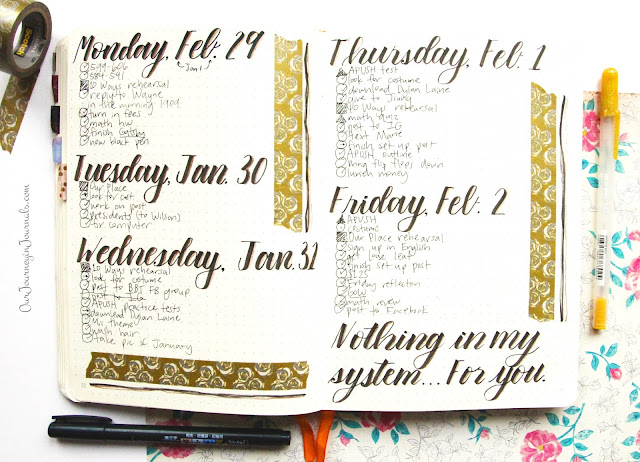 Monday, Feb. 29
(Jan)
599-606
584-591
10 Ways rehearsal
reply to Wayne
in the morning 1909
turn in fees
math hw
finish Gatsby
new black pen
Tuesday, Jan. 30
Our Place
look for cost
work on post
presidents (to Wilson)
fix computer
Wednesday, Jan. 31
10 Ways rehearsal
look for costume
post to BBJ FB group
post to IG
APUSH practice tests
download Dylan Laine
theme
wash hair
take pic of January
Thursday, Feb. 1
APUSH test
look for costume
download Dylan Laine
give to Jiany
10 Ways rehearsal
math quiz
post to IG
text Marie
finish set up post
APUSH outline
bring flip flops down
lunch money
Friday, Feb. 2
APUSH
costume
Our Place rehearsal
sign up in English
get loose leaf
finish set up post
$1.25
Friday reflection
math review
post to Facebook
Nothing in my
system... For you.
OurJourneyinJournals.com